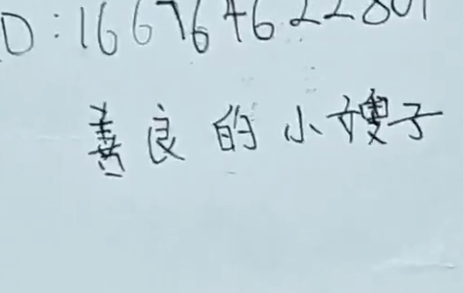 D:16676462280
善良的小嫂子